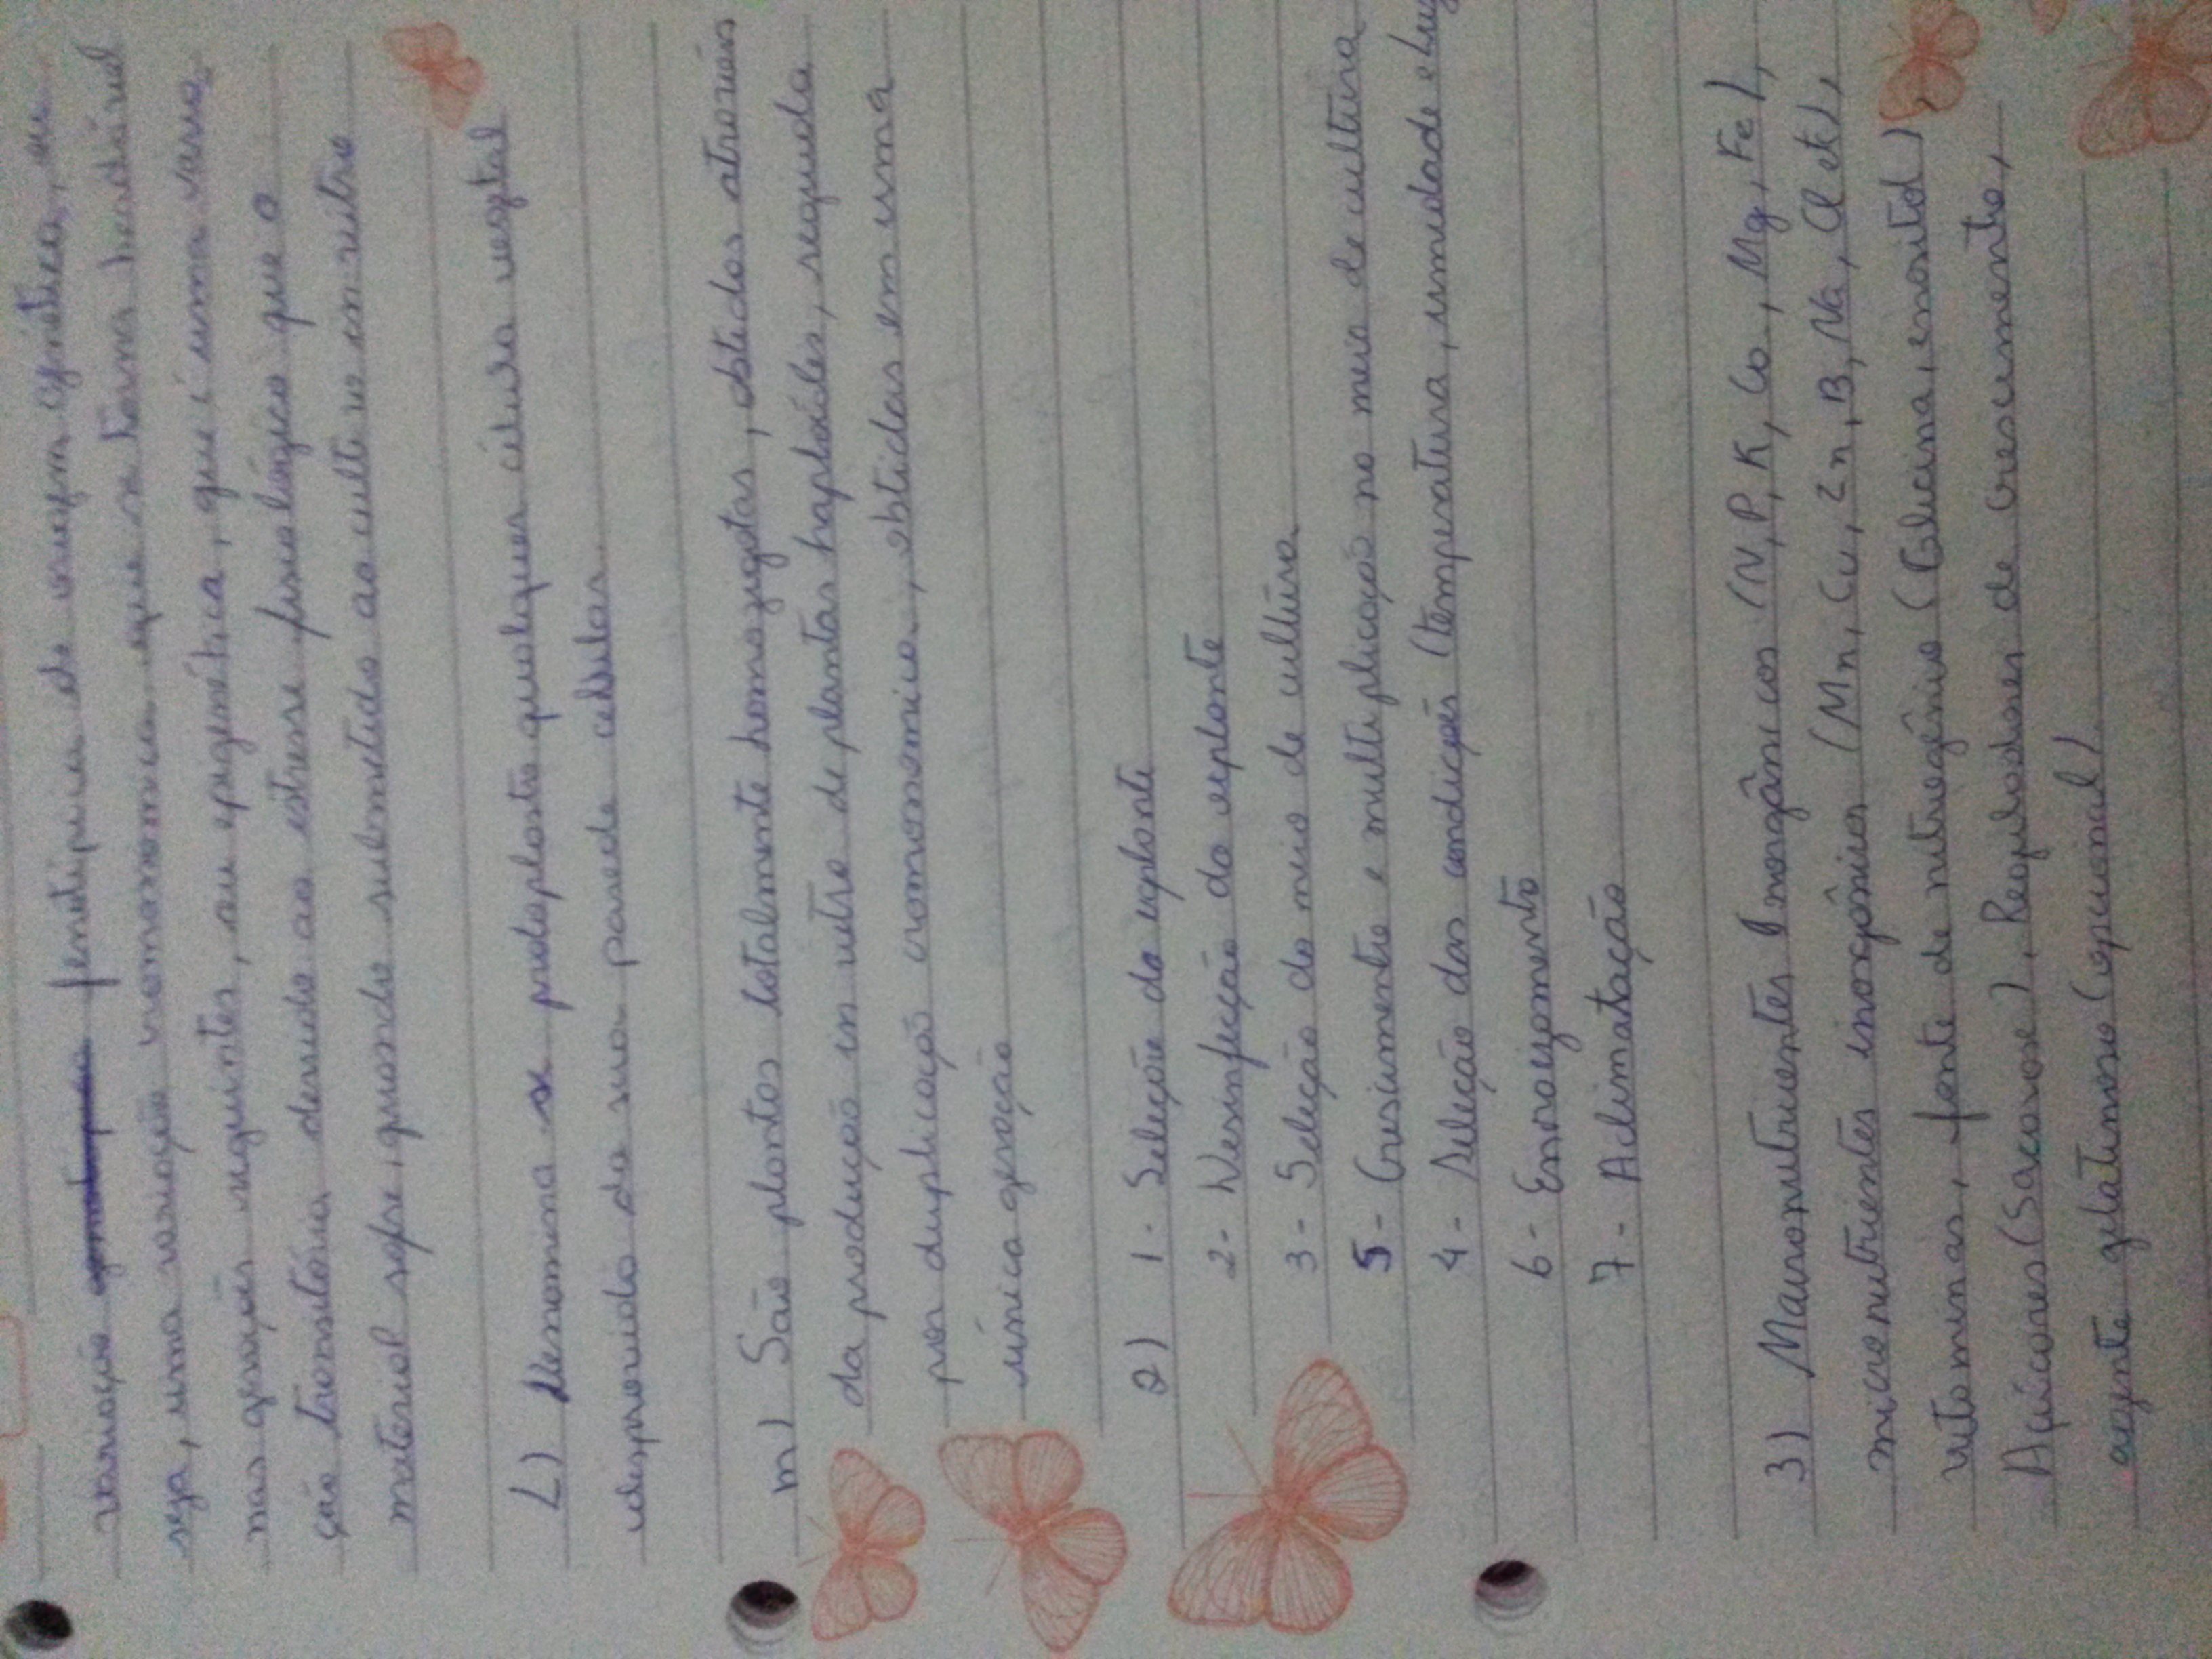 variação genotípica fenotípica de origem genética, ou
seja, uma variação cromossômica que se torna herdável
nas gerações seguintes, ou epigenética, que é uma varia
ção transitória devido ao estresse fisiológico que o
material sofre, quando submetido ao cultivo in vitro
L) Denomina se protoplasto qualquer célula vegetal
desprovida da sua parede celular.
m) São plantas totalmente homozigotas, obtidas através
da produção in vitro de plantas haplóides, seguida
por duplicação cromossômica, obtidas em uma
única geração
2) 1- Seleção do explante
2- Desinfecção do explante
3- Seleção do meio de cultura
5- Crescimento e multiplicação no meio de cultura
4- Seleção das condições (temperatura, umidade e luz
6- Enraizamento
7- Aclimatação
3) Macronutrientes Inorgânicos (N, P, K, Ca, Mg, Fe),
micronutrientes inorgânicos (Mn, Cu, Zn, B, Na, Cl etc),
vitaminas, fonte de nitrogênio (Glicina, inositol),
Açúcares (Sacarose), Reguladores de Crescimento,
agente gelatinoso (opcional)